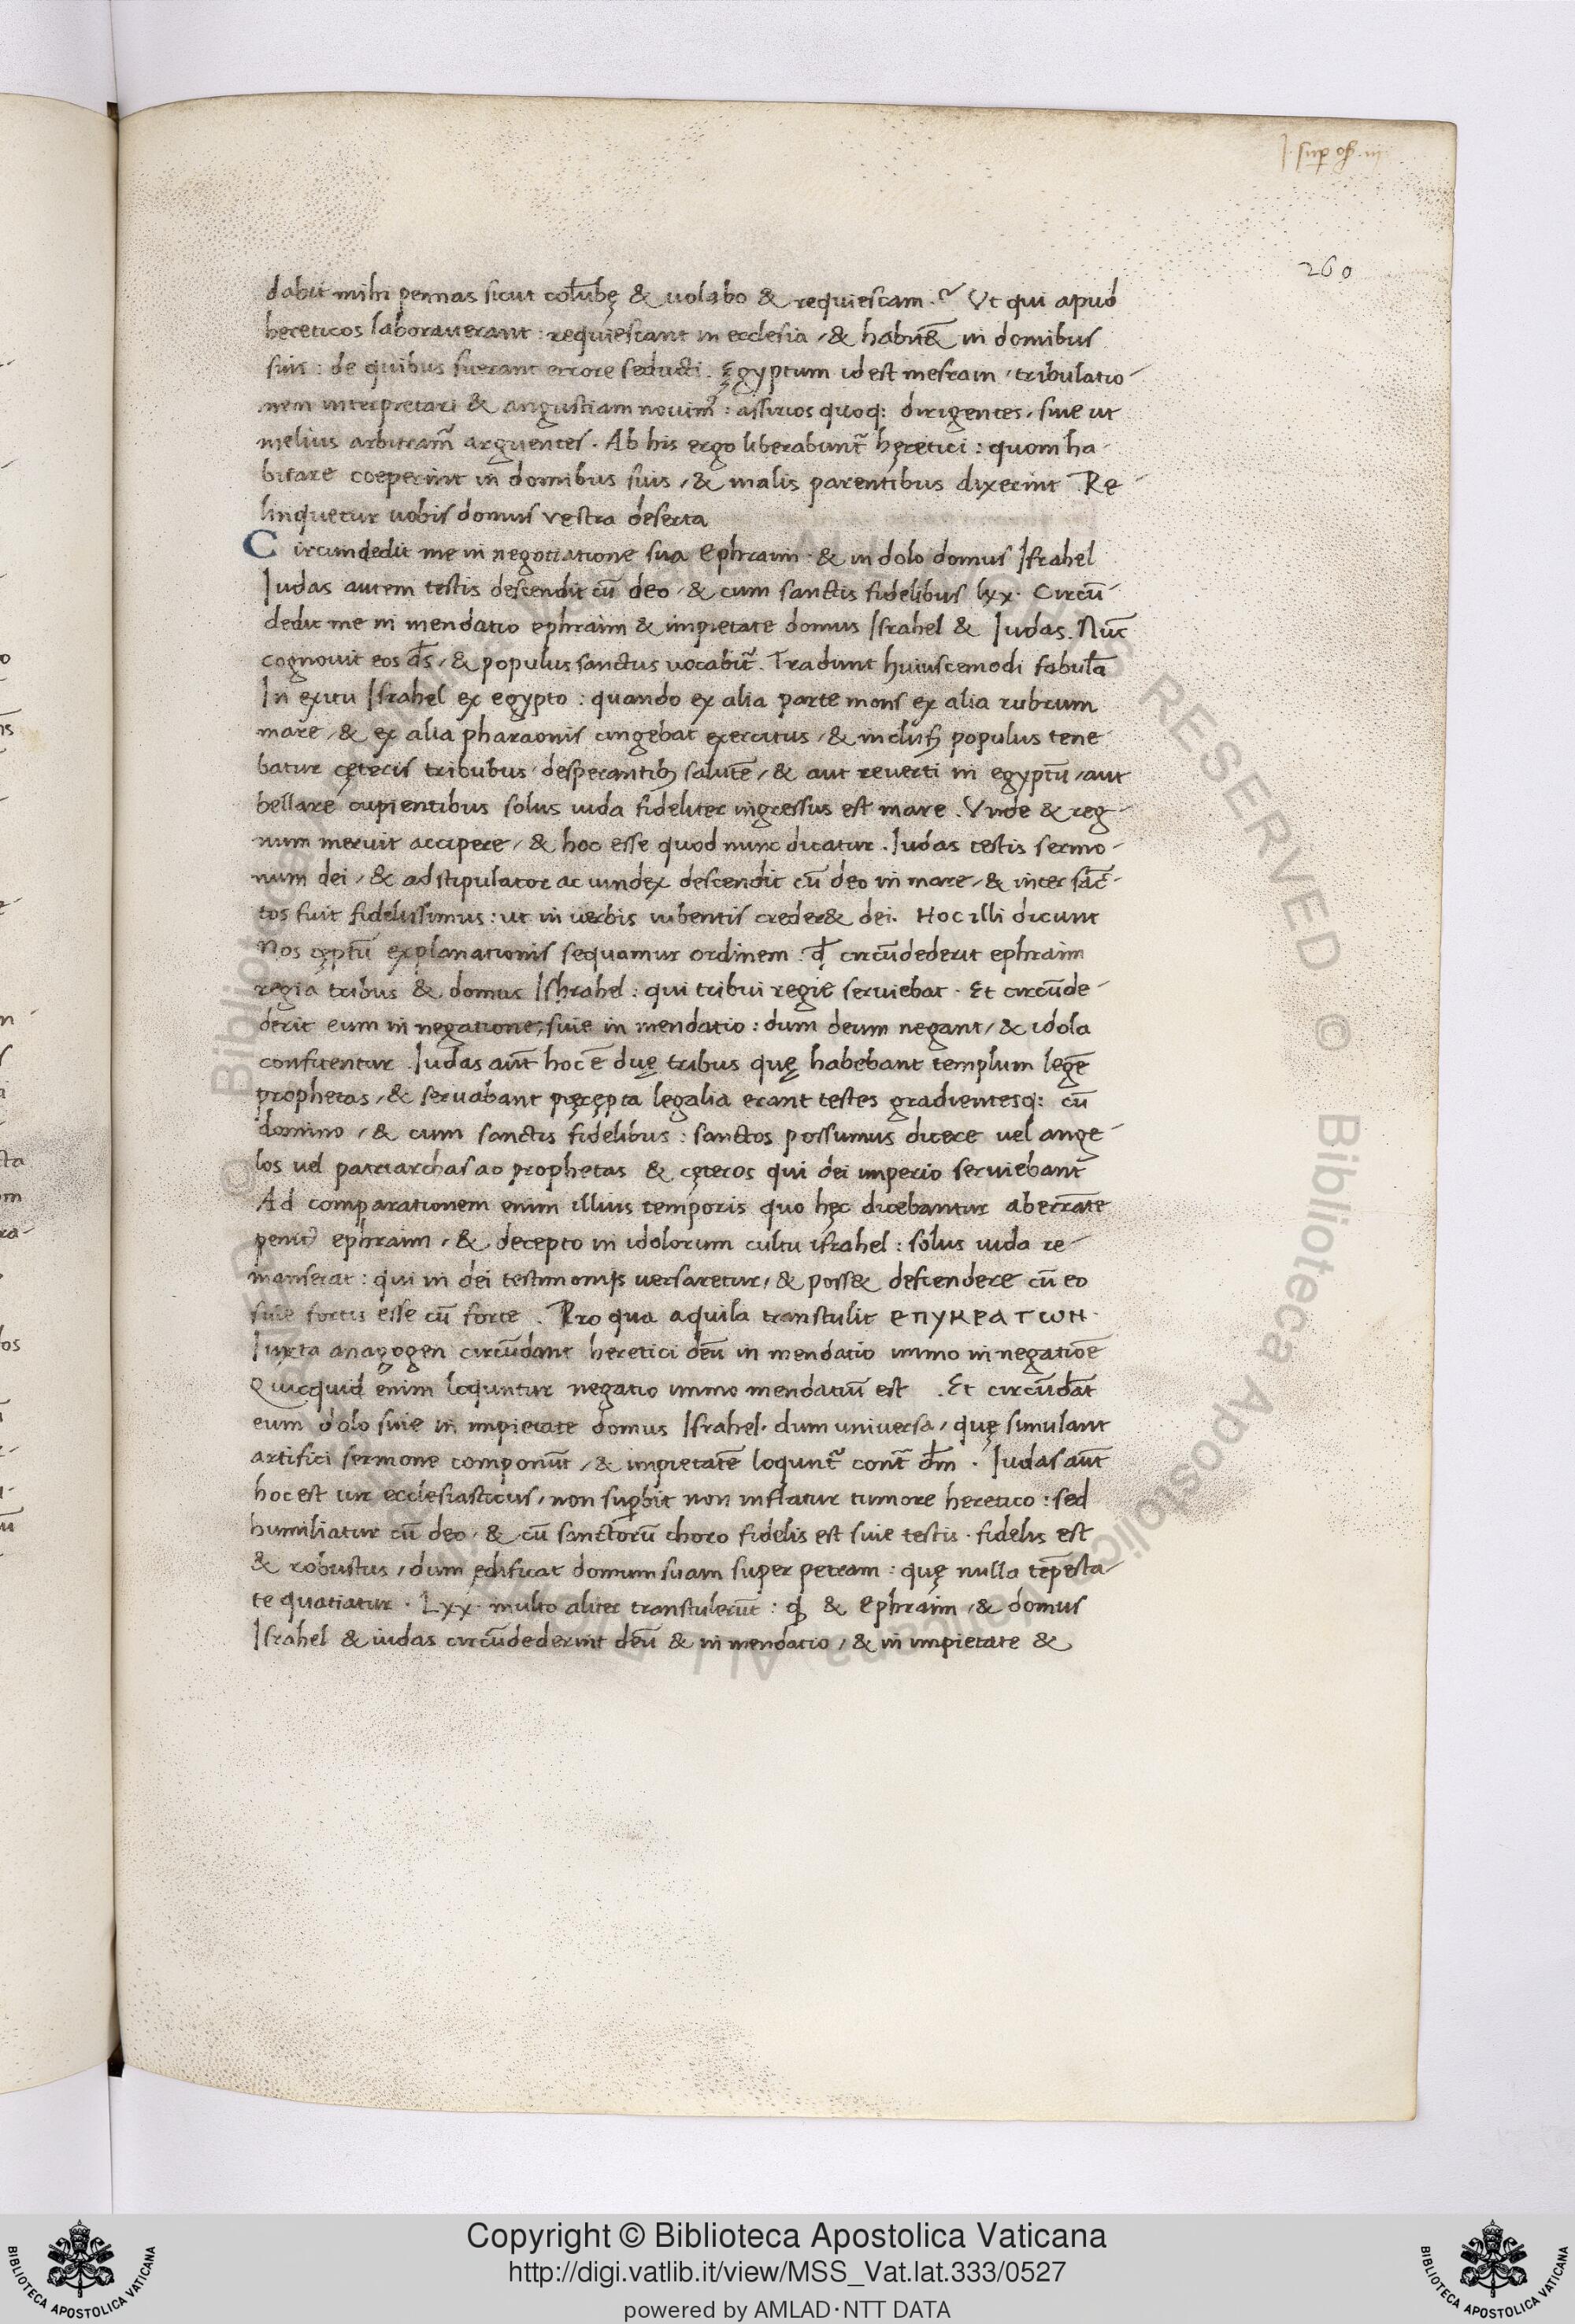 J. sup os. iij
260
dabit mihi pennas sicut colūbę & uolabo & requiescam.? Vt qui apud
hereticos laborauerant: requiescant in ecclesia, & habitēt in domibus
suis: de quibus fuerant errore seducti. Ęgyptum idest mesraim, tribulatio-
nem interpretari & angustiam nouimꝰ: assirios quoq: dirigentes, siue ut
melius arbitramꝰ arguentes. Ab his ergo liberabunt᷑ hęretici: quom ha-
bitare coeperint in domibus suis, & malis parentibus dixerint. Re-
linquetur uobis domus vestra deserta
Circundedit me in negotiatione sua Ephraim. & in dolo domus Israhel
Iudas autem testis descendit cū deo, & cum sanctis fidelibus lxx. Circū-
dedit me in mendatio ephraim & impietate domus Israhel & Iudas. Nūc
cognouit eos ds̄, & populus sanctus uocabit᷑. Tradunt huiuscemodi fabulā
In exitu Israhel ex egypto: quando ex alia parte mons ex alia rubrum
mare, & ex alia pharaonis cingebat exercitus, & inclusꝰ populus tene
batur cęteris tribubus desperantibꝫ salutē, & aut reuerti in egyptū, aut
bellare cupientibus solus iuda fideliter ingressus est mare. Vnde & reg-
num meruit accipere, & hoc esse quod nunc dicatur. Iudas testis sermo-
num dei, & adstipulator ac uindex descendit cū deo in mare, & inter sāc-
tos fuit fidelissimus: ut in uerbis iubentis crederet dei. Hoc illi dicunt
Nos cęptū explanationis sequamur ordinem: qđ circūdederit ephraim
regia tribus & domus Ishrahel: qui tribui regię seruiebat. Et circūde-
derit eum in negatione, siue in mendatio: dum deum negant, & idola
confitentur. Iudas aūt hoc ē duę tribus quę habebant templum legē
prophetas, & seruabant pręcępta legalia erant testes gradientesq: cū
domino, & cum sanctis fidelibus: sanctos possumus dicere uel ange-
los uel patriarchas ac prophetas & cęteros qui dei imperio seruiebant
Ad comparationem enim illius temporis quo hęc dicebantur aberrāte
penitꝰ ephraim, & decepto in idolorum cultu israhel: solus iuda re-
manserat: qui in dei testimonijs uersaretur, & posset descendere cū eo
siue fortis esse cū forte. Pro qua aquila transtulit ЄΠΥΚΡΑΤωΝ.
Iuxta anagogen circūdant heretici deū in mendatio immo in negatiōe
Quicquid enim loquntur negatio immo mendatiū est. Et circūdāt
eum dolo siue in impietate domus Israhel. dum uniuersa, quę simulant
artifici sermone componūt, & impietatē loqunt᷑ cont᷑ dm̄. Iudas aūt
hoc est uir ecclesiasticus, non supbit non inflatur tumore heretico: sed
humiliatur cū deo, & cū sanctorū choro fidelis est siue testis. fidelis est
& robustus, dum ędificat domum suam super petram: quę nulla tēpesta-
te quatiatur. Lxx. multo aliter transtulerūt: qđ & Ephraim, & domus
Israhel & iudas circūdederint deū & in mendatio, & in impietate &
Copyright © Biblioteca Apostolica Vaticana
http://digi.vatlib.it/view/MSS_Vat.lat.333/0527
powered by AMLAD·NTT DATA